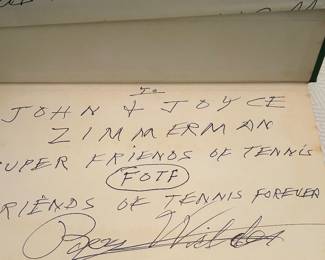 To
JOHN & JOYCE
ZIMMERMAN
SUPER FRIENDS OF TENNIS
FOTF
FRIENDS OF TENNIS FOREVER